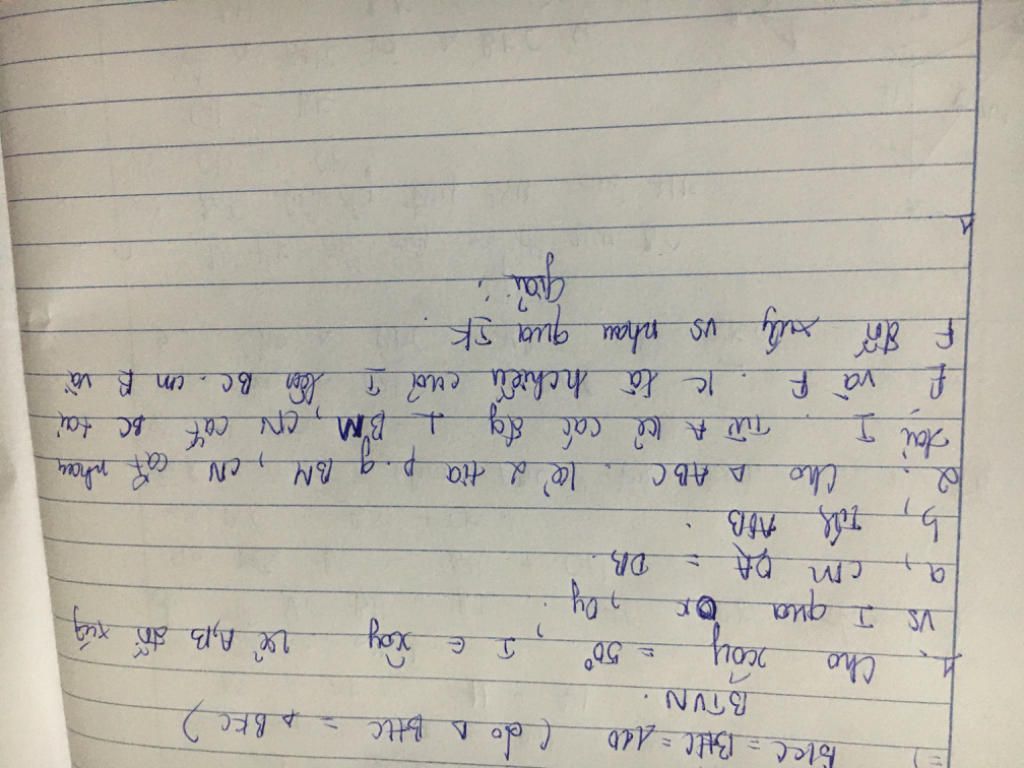 => BKC = BHC = 110 (do Δ BHC = Δ BKC)
BTVN.
1. Cho xOy = 50°, I ∈ xOy. Kẻ A, B đối xứg
vs I qua Ox, Oy.
a, cm OA = OB.
b, Tính AOB.
2. Cho Δ ABC. Kẻ 2 tia p.g BM, CN cắt nhau
tại I. Từ A kẻ các đg ⊥ BM, CN cắt BC tại
E và F. K là hchiếu của I trên BC. cm E và
F đx xứg vs nhau qua IK.
giải:
1